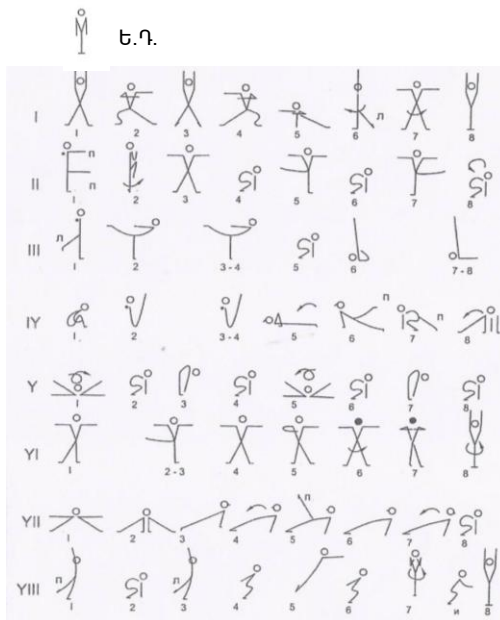 Ե.Դ.
I
1 2 3 4 5 6 Л 7 8
II
П П
1 2 3 4 5 6 7 8
III
Л
1 2 3 - 4 5 6 7 - 8
IY
П П
1 2 3 - 4 5 6 7 8
Y
1 2 3 4 5 6 7 8
YI
1 2 - 3 4 5 6 7 8
YII
П
1 2 3 4 5 6 7 8
YIII
П Л
1 2 3 4 5 6 7 и 8